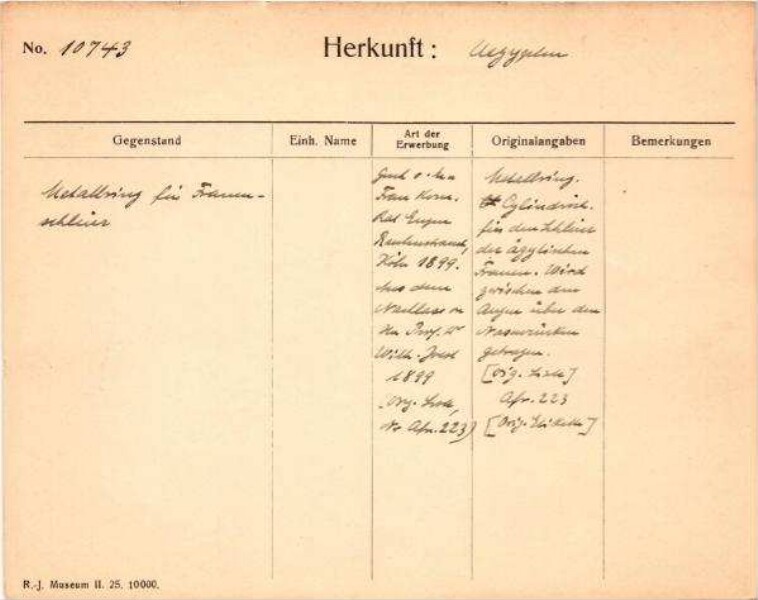 No. 10743
Herkunft: Aegypten
Gegenstand
Einh. Name
Art der Erwerbung
Originalangaben
Bemerkungen
Metallring für Frauen-
schleier
Frau Kom.
Rat Eugen
Rautenstrauch,
Köln 1899.
Aus dem
Nachlass v.
Hn Prof. Dr
Wilh. Joest
1899
Orig. Liste,
No Afr. 223)
Metallring.
Cylindrisch.
für den Schleier
der ägyptischen
Frauen. Wird
zwischen den
Augen über dem
Nasenrücken
getragen.
[Orig. Liste]
Afr. 223
[Orig. Etikette]
R.-J. Museum II. 25. 10000.